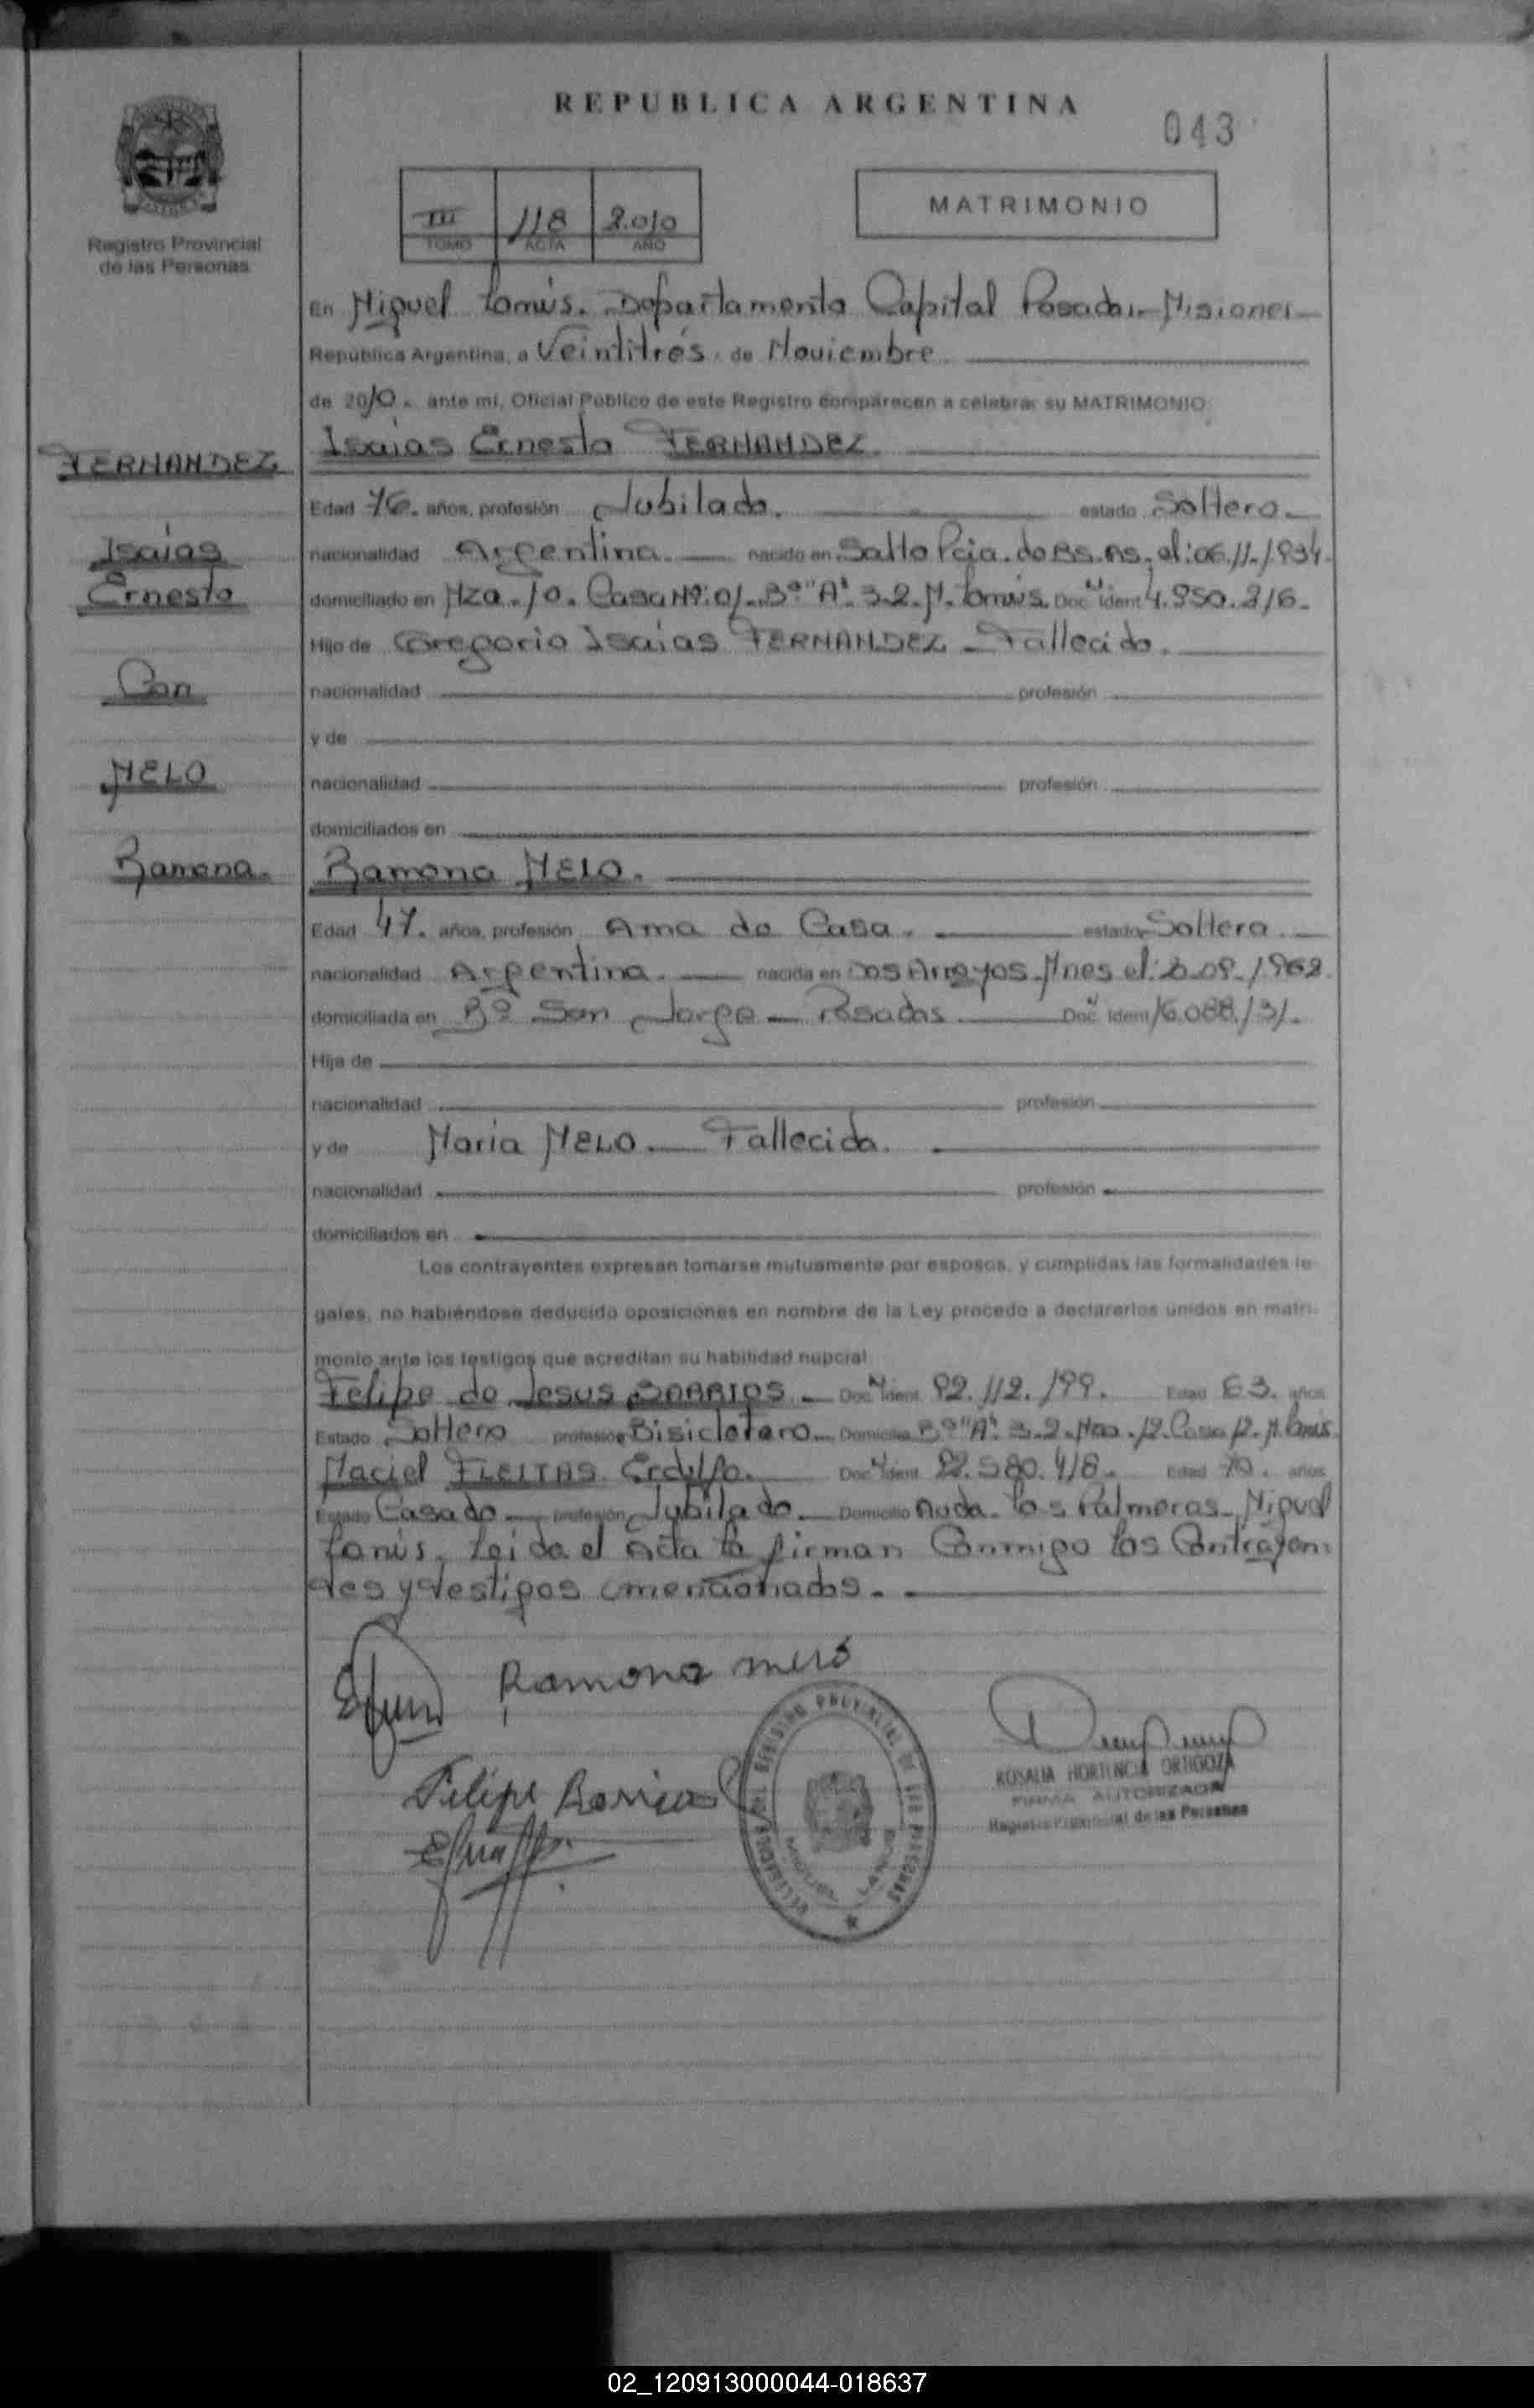 REPUBLICA ARGENTINA
043
Registro Provincial
de las Personas
III 118 2.010
TOMO ACTA AÑO
MATRIMONIO
En Miguel Lanús. Departamento Capital Posadas Misiones
República Argentina, a Veintitrés de Noviembre
de 2010. ante mí, Oficial Público de este Registro comparecen a celebrar su MATRIMONIO:
FERNANDEZ
Isaías
Ernesto
Con
MELO
Ramona.
Isaías Ernesto FERNANDEZ.
Edad 76. años, profesión Jubilado. estado Soltero.
nacionalidad Argentina. nacido en Salto Pcia. de Bs. As. el: 06.11.1.934.
domiciliado en Mza. 10. Casa Nº: 01. Bº "A" 3.2. M. Lanús. Doc. Nº Ident 4.950.216.
Hijo de Gregorio Isaías FERNANDEZ - Fallecido.
nacionalidad profesión
y de
nacionalidad profesión
domiciliados en
Ramona MELO.
Edad 47. años, profesión Ama de Casa. estado Soltera.
nacionalidad Argentina. nacida en Dos Arroyos. Mnes el: 1.962.
domiciliada en Bº San Jorge - Posadas Doc. Nº Ident 16.088.131.
Hija de
nacionalidad profesión
y de María MELO. Fallecida.
nacionalidad profesión
domiciliados en
Los contrayentes expresan tomarse mutuamente por esposos, y cumplidas las formalidades le-
gales, no habiéndose deducido oposiciones en nombre de la Ley procedo a declararlos unidos en matri-
monio ante los testigos que acreditan su habilidad nupcial
Felipe de Jesus BARRIOS. Doc. Nº Ident. 92.112.199. Edad 63. años
Estado Soltero profesión Bisicletero. Domicilio Bº "A" 3.2. Mza. 12. Casa 12. M. Lanús.
Maciel FLEITAS. Doc. Nº Ident. 92.580.418. Edad 70. años
Estado Casado profesión Jubilado. Domicilio Avda. Las Palmeras. Miguel
Lanús. Leída el Acta la firman Conmigo los Contrayen-
tes y testigos mencionados.
Ramona melo
Felipe Barrios
DELEGACION DEL REGISTRO PROVINCIAL DE LAS PERSONAS
MIGUEL LANUS
ROSALIA HORTENCIA ORTIGOZA
FIRMA AUTORIZADA
Registro Provincial de las Personas
02_120913000044-018637